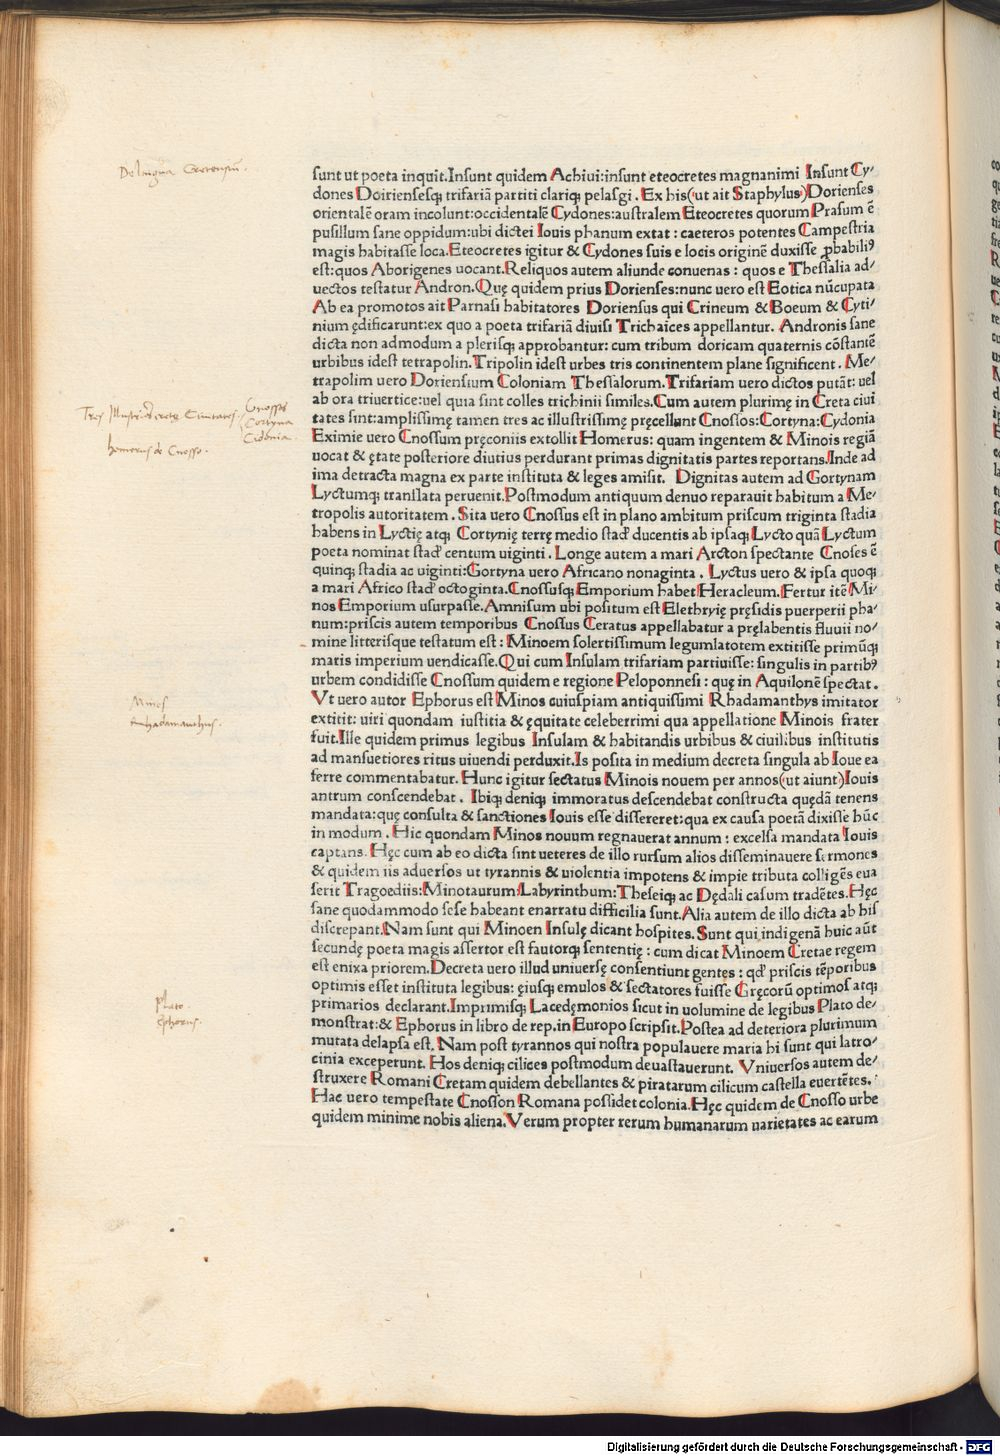 De lingua Cretensiũ.
sunt ut poeta inquit.Insunt quidem Achiui:insunt eteocretes magnanimi Insunt Cy/
dones Doiriensesq; trifariã partiti clariq; pelasgi . Ex his(ut ait Staphylus)Dorienses
orientalẽ oram incolunt:occidentalẽ Cydones:australem Eteocretes quorum Prasum ẽ
pusillum sane oppidum:ubi dictei Iouis phanum extat : caeteros potentes Campestria
magis habitasse loca.Eteocretes igitur & Cydones suis e locis originẽ duxisse ꝓbabiliꝰ
est:quos Aborigenes uocant.Reliquos autem aliunde conuenas : quos e Thessalia ad/
uectos testatur Andron.Quę quidem prius Dorienses:nunc uero est Eotica nũcupata
Ab ea promotos ait Parnasi habitatores Doriensus qui Crineum & Boeum & Cyti/
nium ędificarunt:ex quo a poeta trifariã diuisi Trichaices appellantur. Andronis sane
dicta non admodum a plerisq; approbantur: cum tribum doricam quaternis cõstantẽ
urbibus idest tetrapolin.Tripolin idest urbes tris continentem plane significent . Me/
trapolim uero Doriensium Coloniam Thessalorum.Trifariam uero dictos putãt: uel
ab ora triuertice:uel quia sint colles trichinii similes.Cum autem plurimę in Creta ciui
tates sint:amplissimę tamen tres ac illustrissimę pręcellunt Cnossos:Cortyna:Cydonia
Eximie uero Cnossum pręconiis extollit Homerus: quam ingentem & Minois regiã
uocat & ętate posteriore diutius perdurant primas dignitatis partes reportans.Inde ad
ima detracta magna ex parte instituta & leges amisit. Dignitas autem ad Gortynam
Lyctumq; translata peruenit.Postmodum antiquum denuo reparauit habitum a Me/
tropolis autoritatem . Sita uero Cnossus est in plano ambitum priscum triginta stadia
habens in Lyctię atq; Cortynię terrę medio stad' ducentis ab ipsaq; Lycto quã Lyctum
poeta nominat stad' centum uiginti . Longe autem a mari Arcton spectante Cnoses ẽ
quinq; stadia ac uiginti:Gortyna uero Africano nonaginta . Lyctus uero & ipsa quoq;
a mari Africo stad' octoginta.Cnossusq; Emporium habet Heracleum.Fertur itẽ Mi/
nos Emporium usurpasse.Amnisum ubi positum est Elethryię pręsidis puerperii pha/
num:priscis autem temporibus Cnossus Ceratus appellabatur a pręlabentis fluuii no/
mine litterisque testatum est : Minoem solertissimum legumlatotem extitisse primũq;
maris imperium uendicasse.Qui cum Insulam trifariam partiuisse: singulis in partibꝰ
urbem condidisse Cnossum quidem e regione Peloponnesi : quę in Aquilonẽ spectat .
Vt uero autor Ephorus est Minos cuiuspiam antiquissimi Rhadamanthys imitator
extitit: uiri quondam iustitia & ęquitate celeberrimi qua appellatione Minois frater
fuit.Ille quidem primus legibus Insulam & habitandis urbibus & ciuilibus institutis
ad mansuetiores ritus uiuendi perduxit.Is posita in medium decreta singula ab Ioue ea
ferre commentabatur. Hunc igitur sectatus Minois nouem per annos(ut aiunt)Iouis
antrum conscendebat . Ibiq; deniq; immoratus descendebat constructa quędã tenens
mandata:quę consulta & sanctiones Iouis esse dissereret:qua ex causa poetã dixisse hũc
in modum . Hic quondam Minos nouum regnauerat annum : excelsa mandata Iouis
captans. Hęc cum ab eo dicta sint ueteres de illo rursum alios disseminauere sermones
& quidem iis aduersos ut tyrannis & uiolentia impotens & impie tributa colligẽs eua
serit Tragoediis:Minotaurum:Labyrinthum:Theseiq; ac Dędali casum tradẽtes.Hęc
sane quodammodo sese habeant enarratu difficilia sunt.Alia autem de illo dicta ab his
discrepant.Nam sunt qui Minoen Insulę dicant hospites. Sunt qui indigenã huic aũt
secundę poeta magis assertor est fautorq; sententię : cum dicat Minoem Cretae regem
est enixa priorem.Decreta uero illud uniuersę consentiunt gentes : qd' priscis tẽporibus
optimis esset instituta legibus: ęiusq; emulos & sectatores fuisse Gręcorũ optimos atq;
primarios declarant.Imprimisq; Lacedęmonios sicut in uolumine de legibus Plato de/
monstrat:& Ephorus in libro de rep.in Europo scripsit.Postea ad deteriora plurimum
mutata delapsa est. Nam post tyrannos qui nostra populauere maria hi sunt qui latro/
cinia exceperunt. Hos deniq; cilices postmodum deuastauerunt. Vniuersos autem de/
struxere Romani Cretam quidem debellantes & piratarum cilicum castella euertẽtes.
Hac uero tempestate Cnosson Romana possidet colonia.Hęc quidem de Cnosso urbe
quidem minime nobis aliena.Verum propter rerum humanarum uarietates ac earum
Tres Cretę Ciuitates.
Gnossos
Cortyna
Cidonia.
homerus de Cnosso.
Minos
Rhadamanthus.
plato
Ephorus.
Digitalisierung gefördert durch die Deutsche Forschungsgemeinschaft - DFG